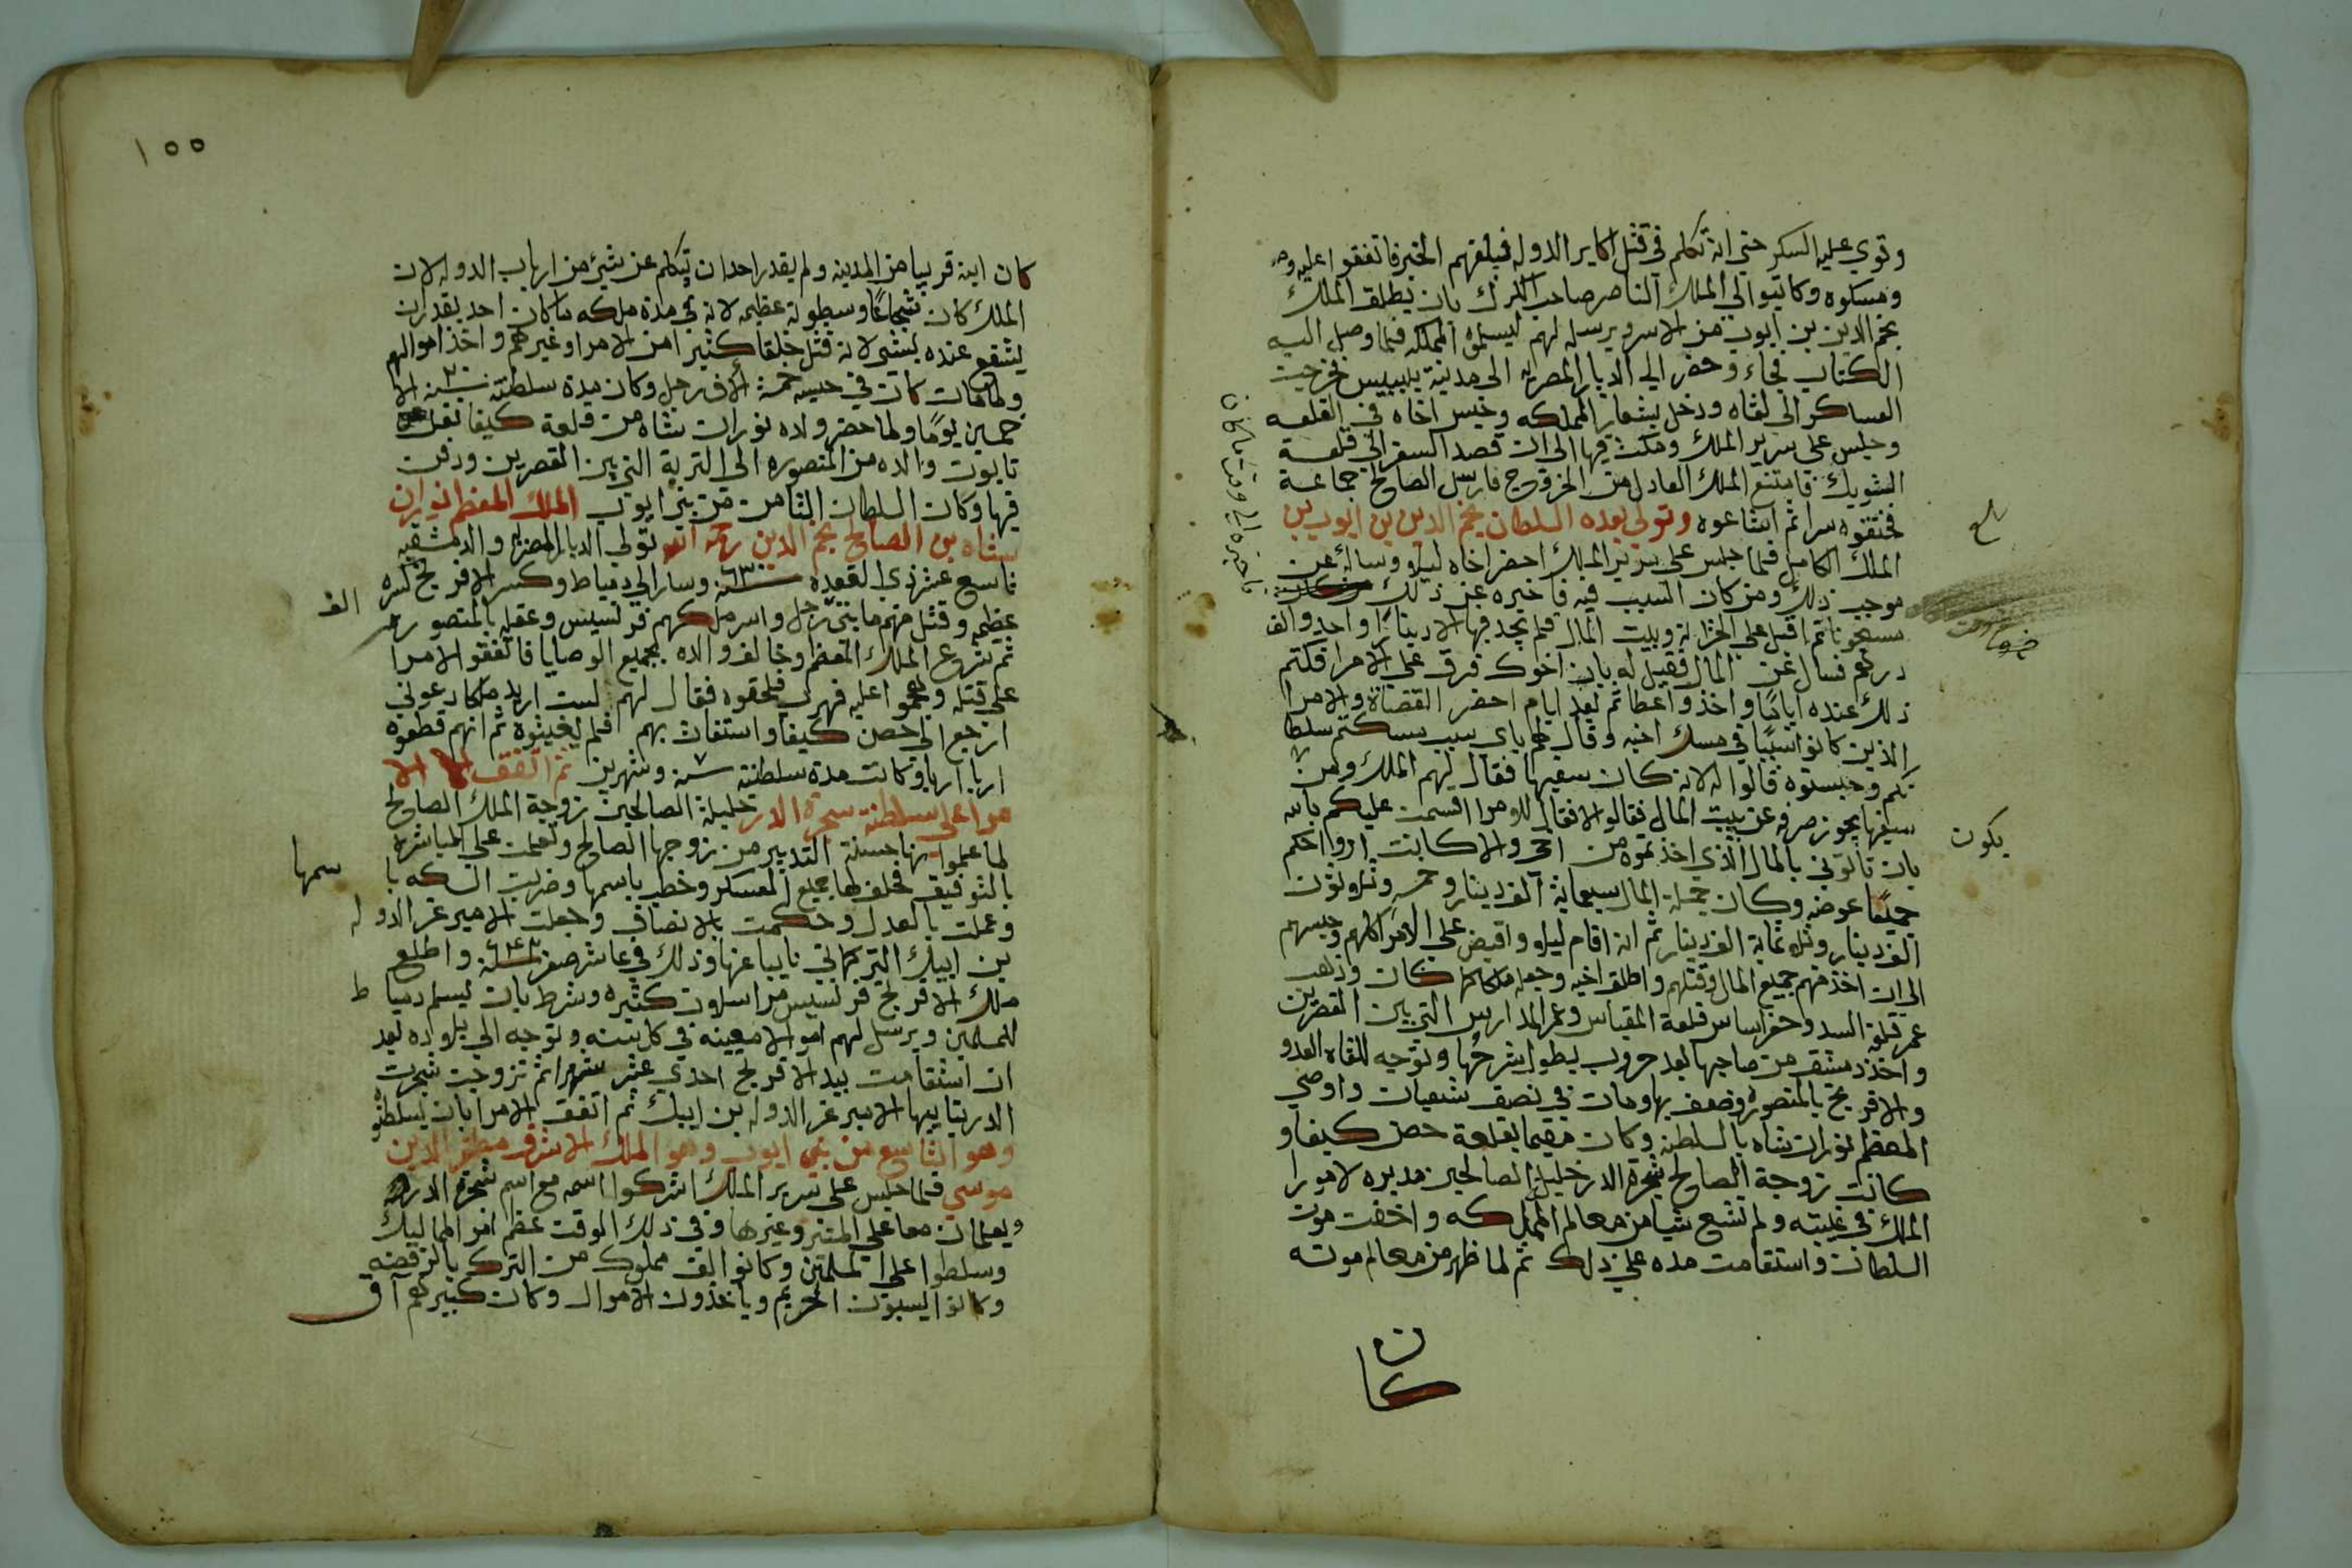 وقوي عليه السكر حتى انه تكلم في قتل اكابر الدوله فبلغهم الخبر فاتفقوا عليه
ومسكوه وكاتبوا الي الملك الناصر صاحب الكرك بان يطلق الملك
نجم الدين بن ايوب من الاسر ويرسله لهم ليسلموه المملكه فلما وصل اليه
الكتاب فجاء وحضر الي الديار المصريه الى مدينة بلبيس فخرجت
العساكر الى لقاه ودخل بشعار المملكه وحبس اخاه في القلعه
وجلس على سرير الملك ومكث فيها الى ان قصد السفر الي قلعة
الشوبك فامتنع الملك العادل من الخروج فارسل الصالح جماعة
فخنقوه سرا ثم اشاعوه وتولى بعده السلطان نجم الدين بن ايوب بن
الملك الكامل فلما جلس على سرير الملك احضر اخاه ليلا وساله عن
موجب ذلك ومن كان السبب فيه فاخبره عن ذلك
مسجونا ثم اقبل على الخزانة وبيت المال فلم يجد فيها الا دينارا واحد والف
درهم فسال عن المال فقيل له بان اخوك فرقه على الامرا فكتم
ذلك عنده اياما واخذ واعطا ثم بعد ايام احضر القضاة والامرا
الذين كانوا سببا في مسك اخيه وقال لهم باي سبب مسكتم سلطا
نكم وحبستوه قالوا له لانه كان سفيها فقال لهم الملك ومن
سفيها يجوز صرفه عن بيت المال فقالوا لا فقال للامرا اقسمت عليكم بالله
بان تاتوني بالمال الذي اخذتموه من اخي والا كانت ارواحكم
جميعا عوضه وكان جملة المال سبعماية الف دينار وخمسه وثلاثون
الف دينار وثلاثماية الف دينار ثم انه اقام ليلا واقبض على الامرا كلهم وحبسهم
الى ان اخذ منهم جميع المال وقتلهم واطلق اخيه وجعله ملكا كما كان وذهب
عمر قلعة السد وحفر اساس قلعة المقياس وعمر المدارس التي بين القصرين
واخذ دمشق من صاحبها بعد حروب يطول شرحها وتوجه للقاه العدو
والافرنج بالمنصوره وضعف بها ومات في نصف شعبان واوصي
المعظم توران شاه بالسلطنه وكان مقيما بقلعة حصن كيفا و
كانت زوجة الصالح شجرة الدر خليل الصالحين مدبره لامور ا
الملك في غيبته ولم تشع شيا من معالم المملكه واخفت موت
السلطان واستقامت مده على ذلك ثم لما ظهر من معالم موته
كان
بلغ
يكون
فاخبره الي وقت ما كان
١٥٥
كان ابنه قريبا من المدينه ولم يقدر احدان يتكلم عن شيء من ارباب الدوله لان
الملك كان شجاعا وسطوته عظيمه لانه في مدة ملكه ما كان احد يقدر ان
يشفع عنده بشي لانه قتل خلقا كثيرا من الامرا وغيرهم واخذ اموالهم
ولما مات كان في حبسه خمسة الاف رجل وكان مدة سلطنته سنه الا
خمسين يوما ولما حضر ولده توران شاه من قلعة كيفا نقل
تابوت والده من المنصوره الى التربة التي بين القصرين ودفن
فيها وكان السلطان الثامن من بني ايوب الملك المعظم توران
شاه بن الصالح نجم الدين رحمه الله تولى الديار المصريه والدمشقيه
تاسع عشر ذي القعده سنه وسار الي دمياط وكسر الافرنج كسره
عظيمه وقتل منهم مايتي رجل واسر ملكهم فرنسيس وعقله بالمنصوره
الف
ثم شرع الملك المعظم وخالف والده بجميع الوصايا فاتفقوا الامرا
على قتله وهجموا عليه فهرب فلحقوه فقال لهم لست اريد ملكا دعوني
ارجع الي حصن كيفا واستغاث بهم فلم يغيثوه ثم انهم قطعوه
اربا اربا وكانت مدة سلطنته سنه وشهرين ثم اتفق الا
مرا على سلطنة شجرة الدر خليلة الصالحين زوجة الملك الصالح
لما علموا بها حسنة التدبير من زوجها الصالح وتعلمت على المباشره
بالتوفيق فحلف لها جميع العسكر وخطب باسمها وضربت السكه با
سمها
وعملت بالعدل وحكمت بالانصاف وجعلت الامير عز الدوله
بن ايبك التركماني نايبا عنها وذلك في عاشر صفر سنه واطلع
ملك الافرنج فرنسيس مراسلات كثيره وشرط بان يسلم دمياط
للمسلمين ويرسل لهم اموالا معينه في كل سنه وتوجه الى بلاده بعد
ان استقامت بيد الافرنج احدي عشر شهرا ثم تزوجت شجرت
الدر بنايبها الامير عز الدوله بن ايبك ثم اتفق الامرا بان يسلطنو
وهو التاسع من بني ايوب وهو الملك الاشرف مظفر الدين
موسي فلما جلس على سرير الملك اشركوا اسمه مع اسم شجرة الدر
ويعلمان معا على المنبر وغيرها وفي ذلك الوقت عظم امر المماليك
وسلطوا على المسلمين وكانوا الف مملوك من الترك بالرفضه
وكانوا يسبون الحريم وياخذون الاموال وكان كبيرهم اق